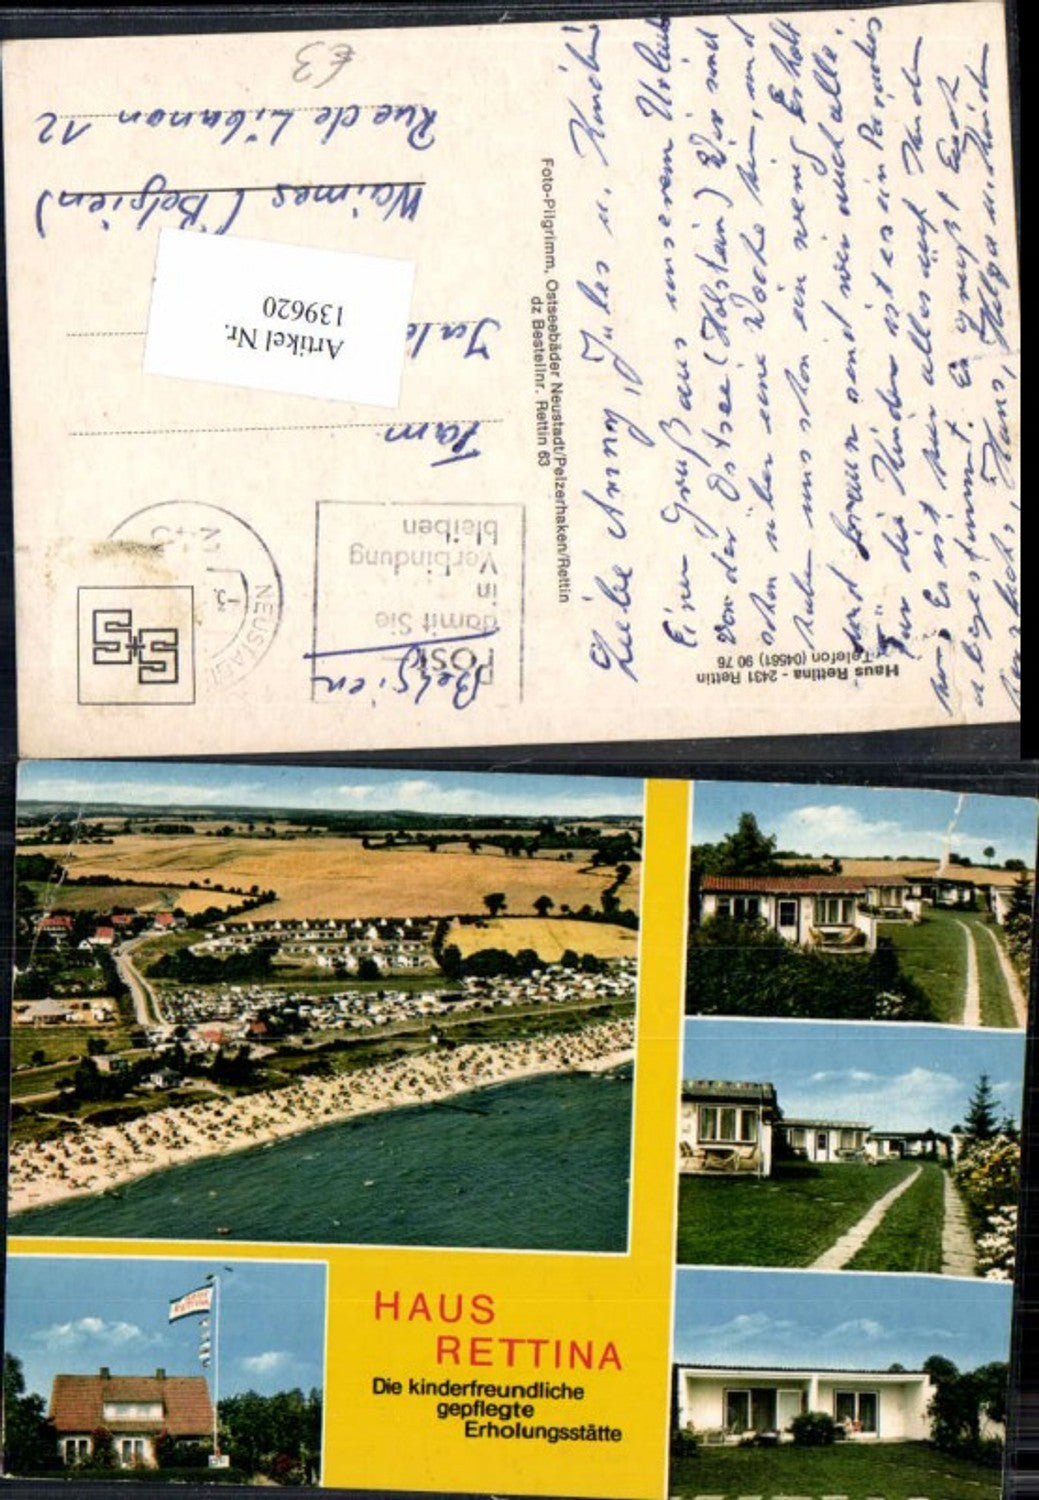 Liebe Anny, Jules u. Kinder!
Einen Gruß aus unserem Urlaub
von der Ostsee (Holstein) Wir sind
schon über eine Woche hier, und
haben uns schon ein wenig erholt
und braun sind wir auch alle.
Für die Kinder ist es ein Paradies
hier. Es ist hier alles auf Kinder
abgestimmt. Es grüßt Euch
Hans, Helga u. Kinder
Haus Rettina - 2431 Rettin
Telefon (04561) 90 76
Foto-Pilgrimm, Ostseebäder Neustadt/Pelzerhaken/Rettin
dz Bestellnr. Rettin 63
POST
damit Sie
in
Verbindung
bleiben
NEUSTADT
Belgien
Fam.
Artikel Nr.
139620
Waimes (Belgien)
Rue de Libanon 12
€3
HAUS
RETTINA
HAUS
RETTINA
Die kinderfreundliche
gepflegte
Erholungsstätte